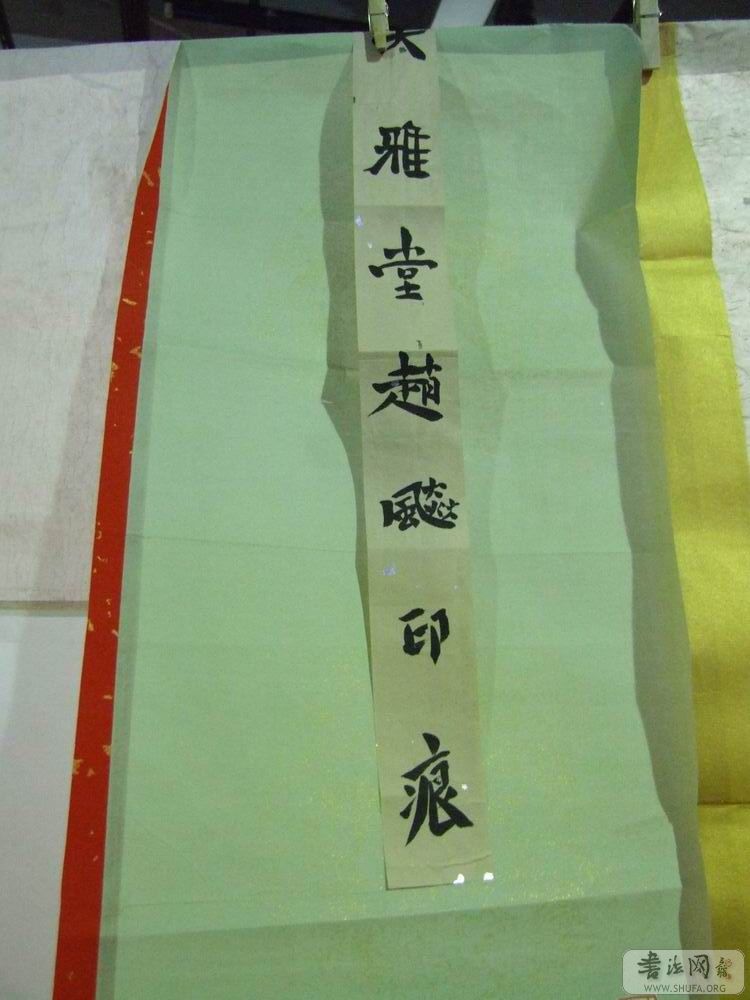 天雅堂趙飈印痕
書法网
WWW.SHUFA.ORG